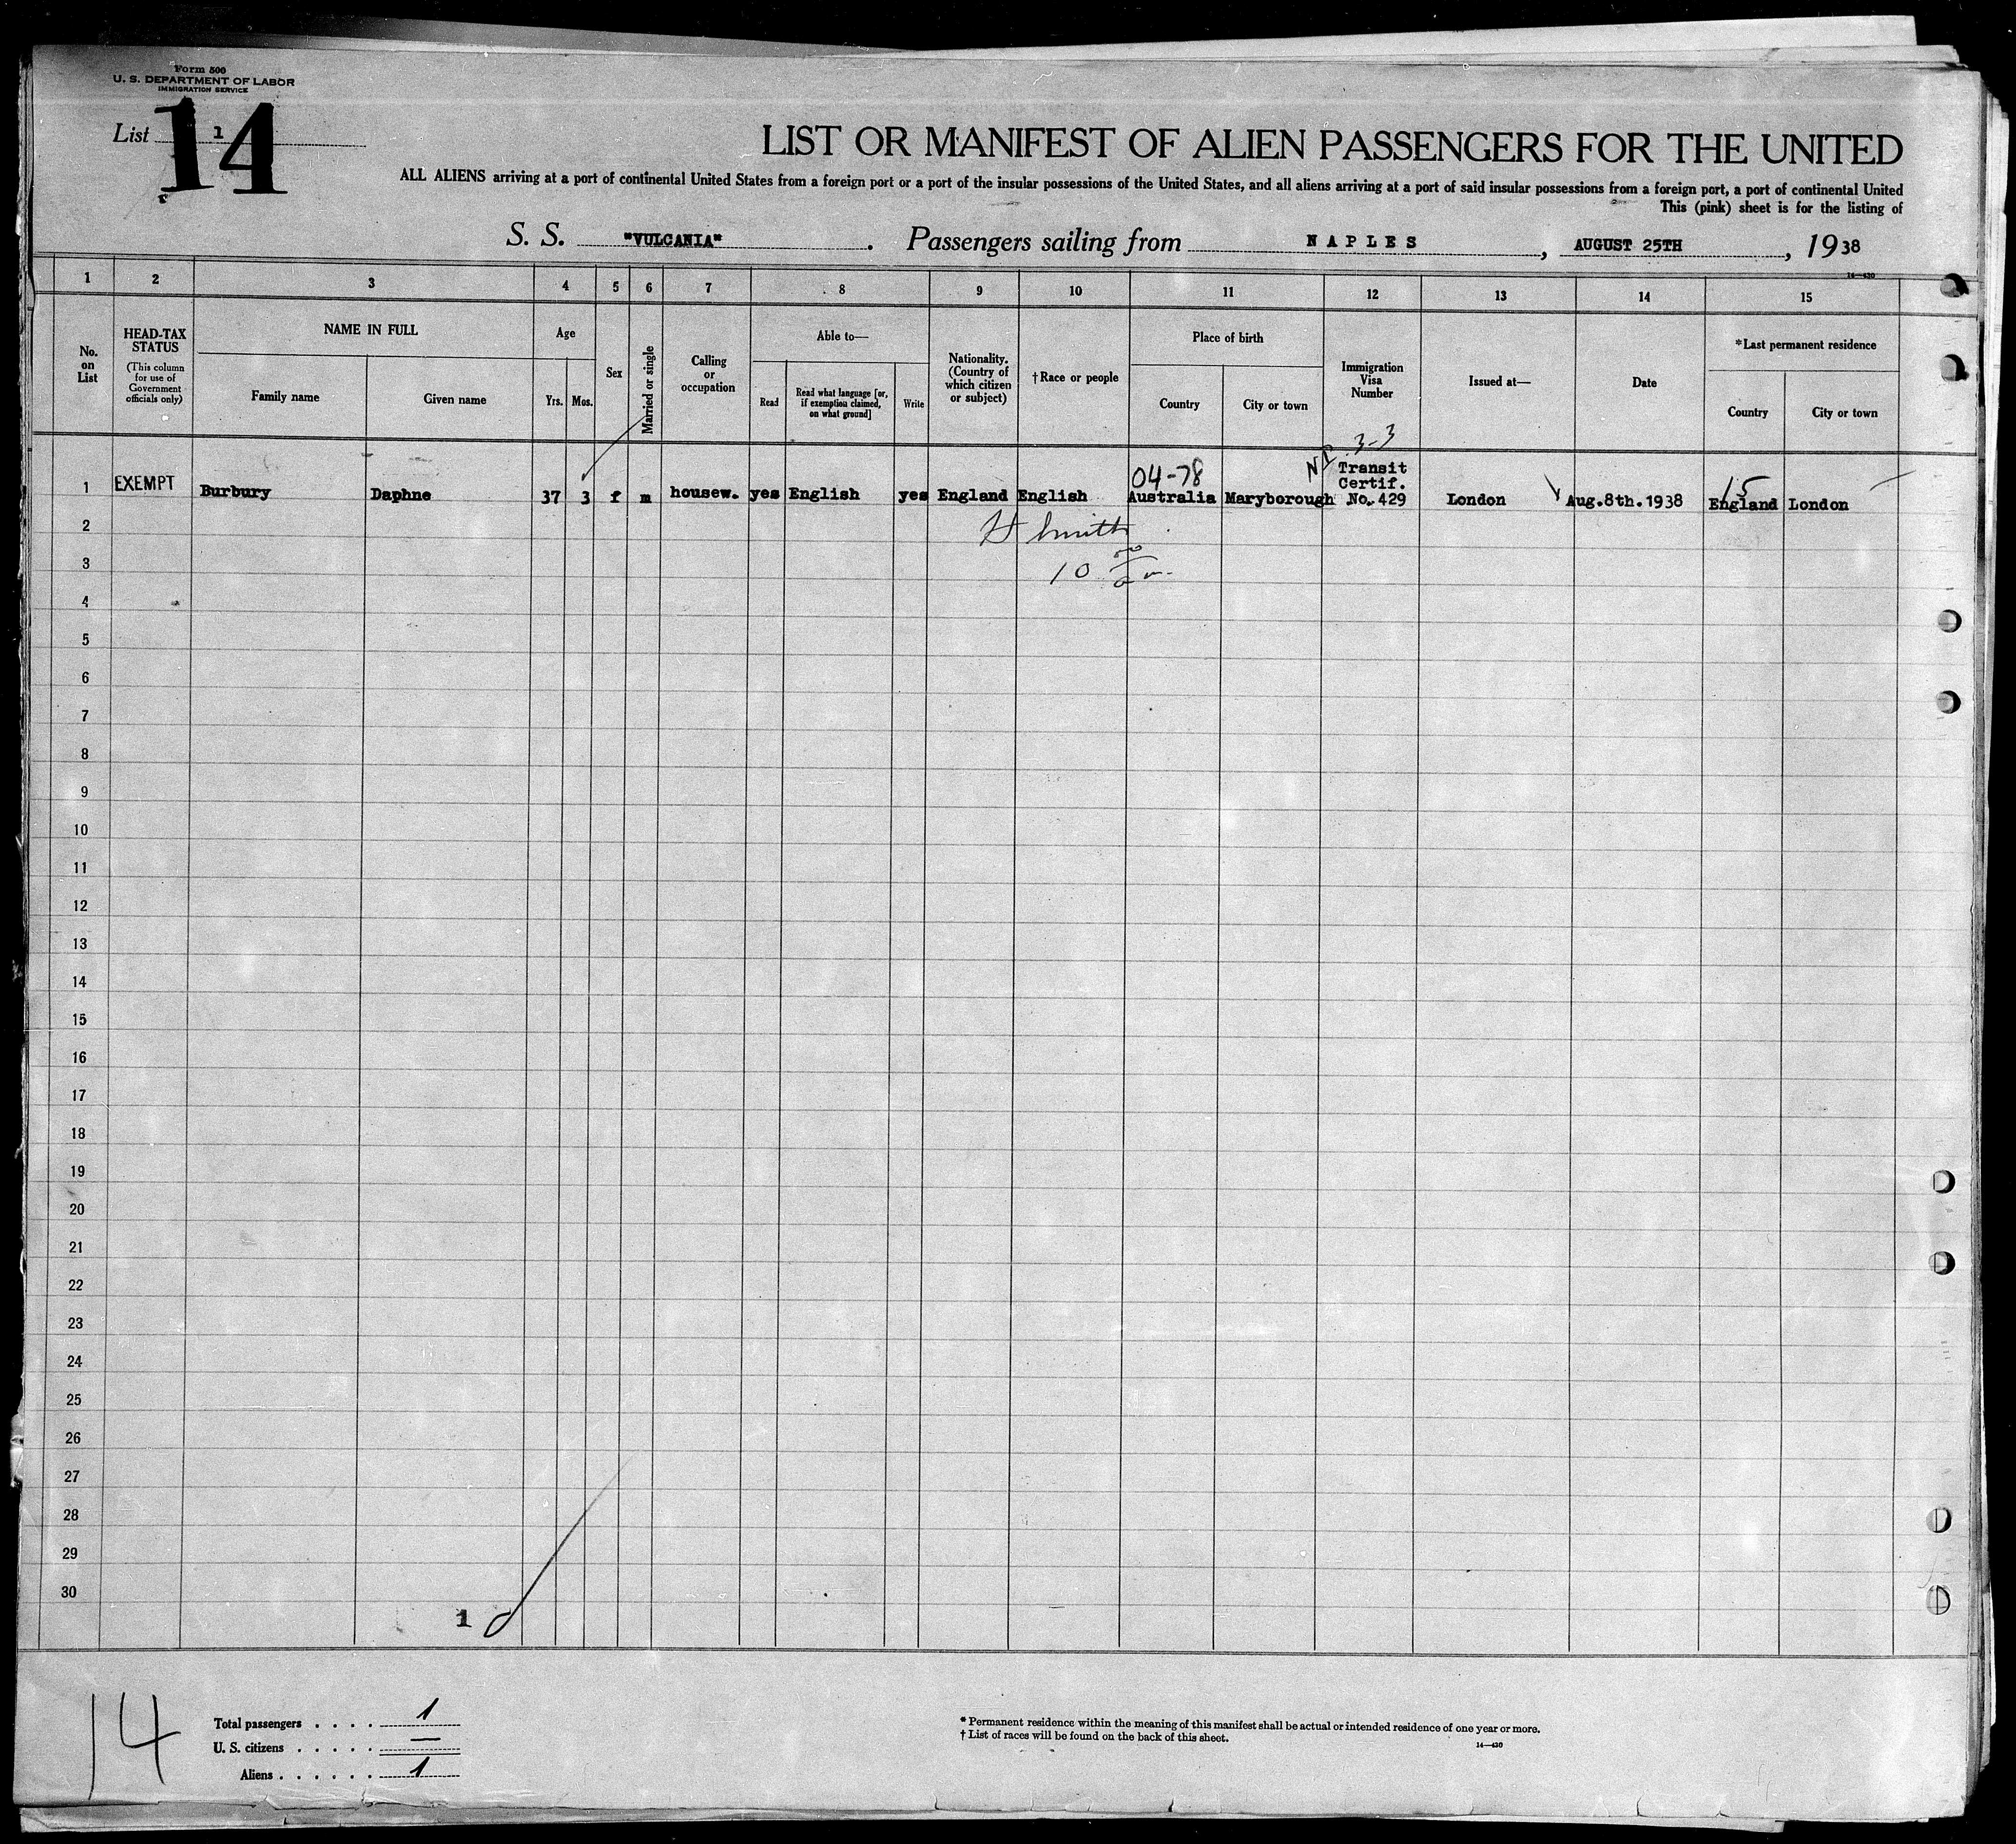 Form 500
U. S. DEPARTMENT OF LABOR
IMMIGRATION SERVICE
List 1
14
LIST OR MANIFEST OF ALIEN PASSENGERS FOR THE UNITED
ALL ALIENS arriving at a port of continental United States from a foreign port or a port of the insular possessions of the United States, and all aliens arriving at a port of said insular possessions from a foreign port, a port of continental United
This (pink) sheet is for the listing of
S. S. "VULCANIA". Passengers sailing from NAPLES, AUGUST 25TH, 1938
14—430
1 2 3 4 5 6 7 8 9 10 11 12 13 14 15
No. on List
HEAD-TAX STATUS
(This column for use of Government officials only)
NAME IN FULL
Family name Given name
Age
Yrs. Mos.
Sex
Married or single
Calling or occupation
Able to—
Read
Read what language [or, if exemption claimed, on what ground]
Write
Nationality. (Country of which citizen or subject)
†Race or people
Place of birth
Country City or town
Immigration Visa Number
Issued at—
Date
*Last permanent residence
Country City or town
3-3
04-78
15
1 EXEMPT Burbury Daphne 37 3 f m housew. yes English yes England English Australia Maryborough Transit Certif. No. 429 London Aug.8th.1938 England London
2 H Smith
3 10
4
5
6
7
8
9
10
11
12
13
14
15
16
17
18
19
20
21
22
23
24
25
26
27
28
29
30
1
14
Total passengers . . . . 1
U. S. citizens . . . . . —
Aliens . . . . . . 1
* Permanent residence within the meaning of this manifest shall be actual or intended residence of one year or more.
† List of races will be found on the back of this sheet.
14—430